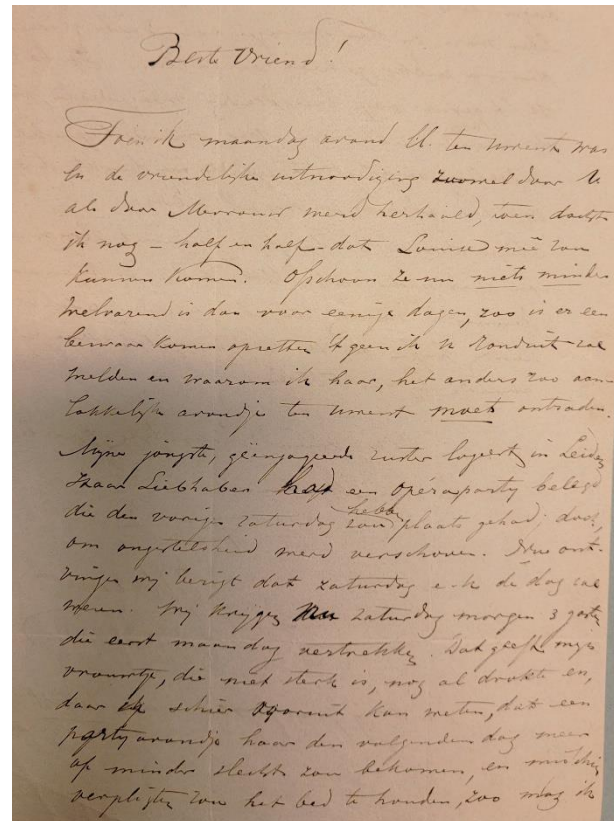 Beste Vriend!
Toen ik maandag avond ll. ten Uwent was
en de vriendelijke uitnoodiging zoowel door U
als door Mevrouw werd herhaald, toen dacht
ik nog – half en half – dat Louise meê zou
kunnen komen. Ofschoon ze nu niets minder
welvarend is dan voor eenige dagen, zoo is er een
bezwaar komen opzetten 't geen ik U ronduit zal
melden en waarom ik haar, het anders zoo aan-
lokkelijk avondje ten Uwent moet ontraden.
Mijne jongste, geëngageerde zuster logeert in Leiden
Haar Liebhaber had een operaparty belegd
die den vorigen zaturdag zou hebben plaats gehad; doch
om ongesteldheid werd verschoven. Nu ont-
vingen wij berigt dat zaturdag e.k. de dag zal
wezen. Wij krijgen nu zaturdag morgen 3 gasten
die eerst maandag vertrekken. Dat geeft mijn
vrouwtje, die niet sterk is, nog al drukte en,
daar ik schier vooruit kan weten, dat een
partyavondje haar den volgenden dag meer
of minder slecht zou bekomen, en misschien
verpligten zou het bed te houden, zoo mag ik